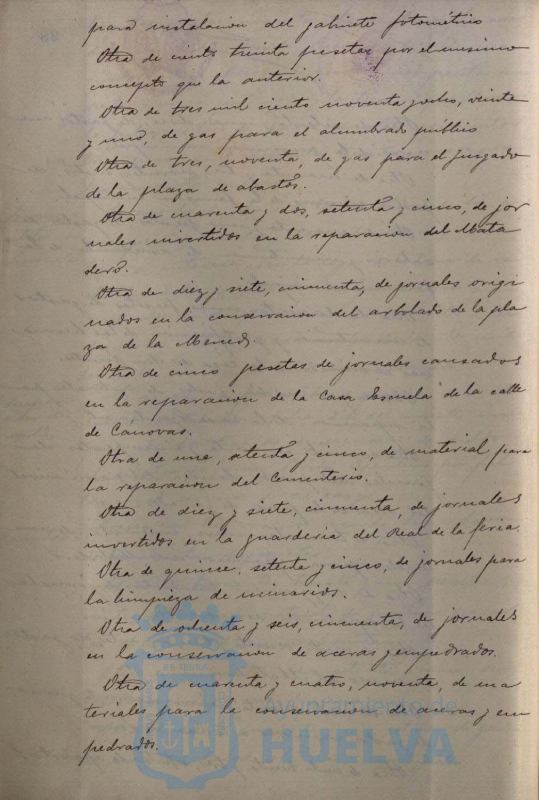 para instalacion del gabinete fotométrico
Otra de ciento treinta pesetas por el mismo
concepto que la anterior.
Otra de tres mil ciento noventa y ocho, veinte
y uno, de gas para el alumbrado público
Otra de tres, noventa, de gas para el Juzgado
de la plaza de abastos.
Otra de cuarenta y dos, setenta y cinco, de jor
nales invertidos en la reparacion del Mata
dero.
Otra de diez y siete, cincuenta, de jornales origi
nados en la conservacion del arbolado de la pla
za de la Merced.
Otra de cinco pesetas de jornales causados
en la reparacion de la Casa Escuela de la calle
de Cánovas.
Otra de une, setenta y cinco, de material para
la reparacion del Cementerio.
Otra de diez y siete, cincuenta, de jornales
invertidos en la guarderia del Real de la feria.
Otra de quince, setenta y cinco, de jornales para
la limpieza de urinarios.
Otra de ochenta y seis, cincuenta, de jornales
en la conservacion de aceras y empedrados.
Otra de cuarenta y cuatro, noventa, de ma
teriales para la conservacion de aceras y em
pedrados.
Ayuntamiento de
HUELVA